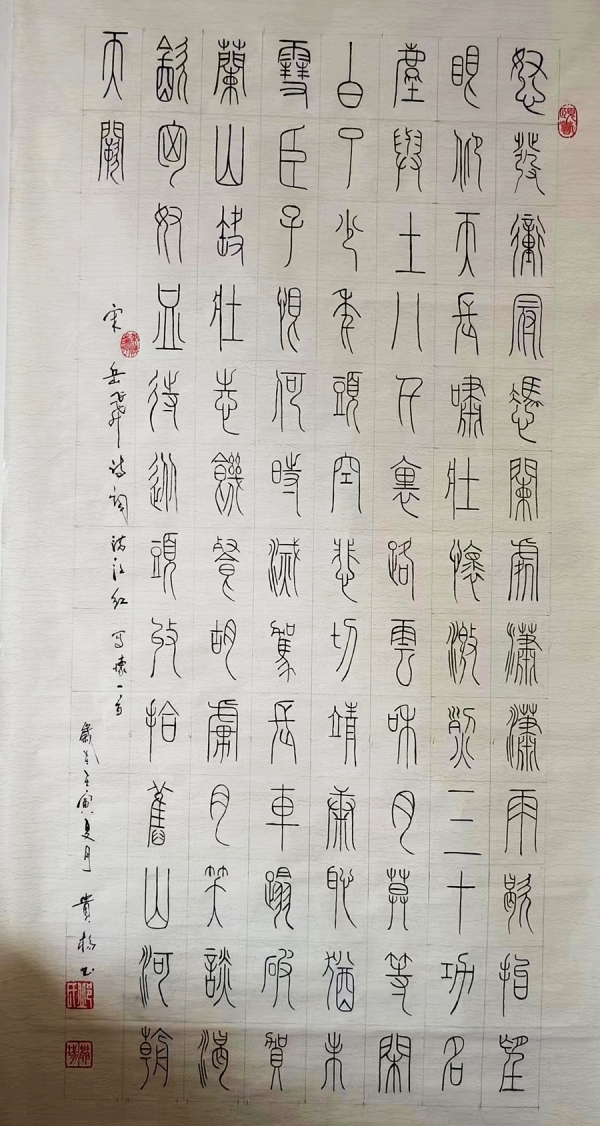 怒發衝冠憑闌處瀟瀟雨歇抬望
眼仰天長嘯壯懷激烈三十功名
塵與土八千裏路雲和月莫等閑
白了少年頭空悲切靖康恥猶未
雪臣子恨何時滅駕長車蹋破賀
蘭山缺壯志饑餐胡虜肉笑談渴
飲匈奴血待從頭收拾舊山河朝
天闕
宋 岳飛詩詞滿江红 写懷一首
歲在壬寅夏月 貴